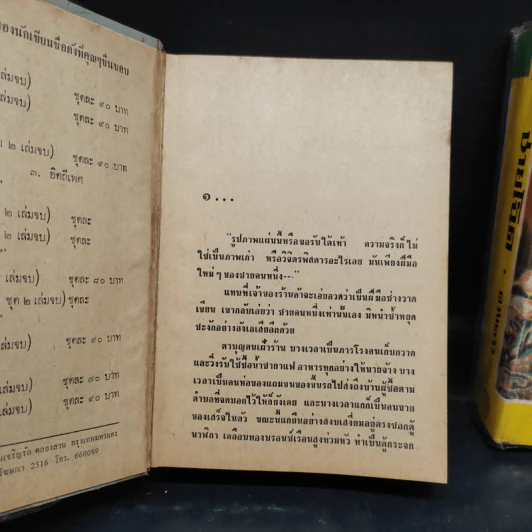 องนักเขียนชื่อดังที่คุณๆชื่นชอบ
เล่มจบ)
ชุดละ ๙๐ บาท
เล่มจบ)
ชุดละ ๙๐ บาท
๒ เล่มจบ)
ชุดละ ๙๐ บาท
๓. อิตถีเพศ
๒ เล่มจบ)
ชุดละ
๒ เล่มจบ)
ชุดละ
เล่มจบ)
ชุดละ ๘๐ บาท
ชุด ๒ เล่มจบ)
ชุดละ
เล่มจบ)
ชุดละ ๙๐ บาท
เล่มจบ)
ชุดละ ๗๐ บาท
เล่มจบ)
ชุดละ ๙๐ บาท
คลองสาน กรุงเทพมหานคร
2516 โทร. 660089
๑...
"รูปภาพแผ่นนี้หรือขอรับใต้เท้า ความจริงก็ไม่
ใช่เป็นภาพเก่า หรือวิจิตรพิสดารอะไรเลย มันเพียงฝีมือ
ใหม่ ๆ ของชายคนหนึ่ง---"
แทนที่เจ้าของร้านค้าจะเอ่ยอวดว่าเป็นฝีมือช่างวาด
เขียน เขากลับเอ่ยว่า ชายคนหนึ่งเท่านั้นเอง มิหนำซ้ำหยุด
ชะงักอย่างลังเลเสียอีกด้วย
ตาบุญคนเฝ้าร้าน บางเวลาเป็นภารโรงคนเก็บกวาด
และวิ่งรับใช้ซื้อน้ำชากาแฟ อาหารทุกอย่างให้นายจ้าง บาง
เวลาเป็นคนห่อของแถมขนของขึ้นรถไปส่งถึงบ้านผู้ซื้อตาม
ตำบลที่จดบอกไว้ให้ก็ยังเคย และบางเวลาแกก็เป็นคนขาย
ของเสร็จในตัว ขณะนี้แกยืนอย่างสงบเสงี่ยมอยู่ตรงซอกตู้
นาฬิกา เคลือบทองบรอนซ์เรือนสูงท่วมหัว ทำเป็นตู้กระจก